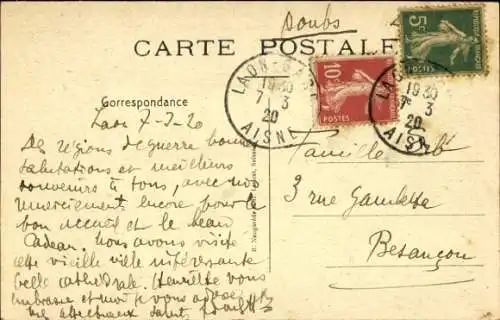 Doubs
CARTE POSTALE
5c
10c
LAON-GARE
1930
7-3
20
AISNE
LAON
1930
7-3
20
AISNE
Correspondance
Laon 7-3-20
Des régions de guerre bonnes
salutations et meilleurs
souvenirs à tous, avec nos
remerciements encore pour le
bon accueil et le beau
cadeau. Nous avons visité
cette vieille ville intéressante
belle cathédrale. Henriette vous
embrasse et moi je vous adresse
mes affectueux saluts
Famille
3 rue Gambetta
Besançon